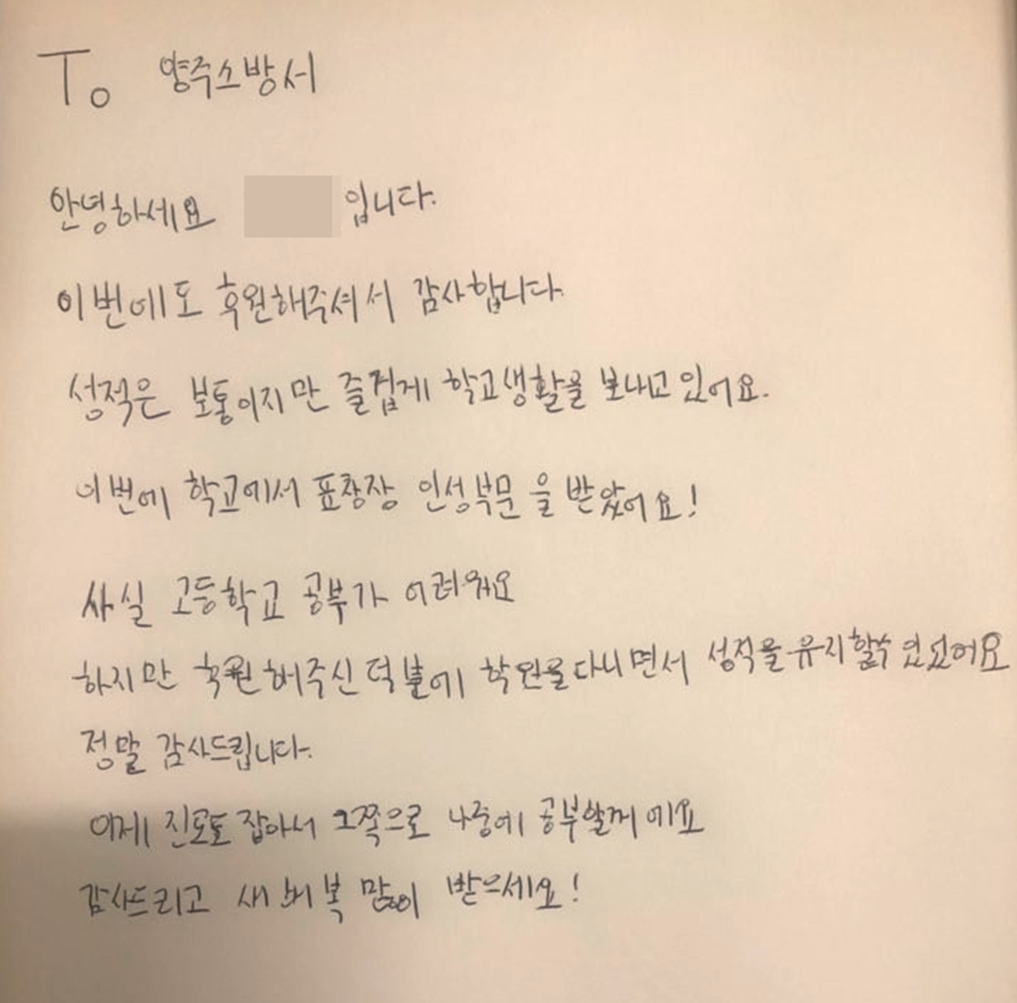 To 양주소방서
안녕하세요 입니다.
이번에도 후원해주셔서 감사합니다.
성적은 보통이지만 즐겁게 학교생활을 보내고 있어요.
이번에 학교에서 표창장 인성부문을 받았어요!
사실 고등학교 공부가 어려워요
하지만 후원해주신 덕분에 학원을 다니면서 성적을 유지할수 있었어요
정말 감사드립니다.
이제 진로도 잡아서 그쪽으로 나중에 공부할게에요
감사드리고 새해 복 많이 받으세요!